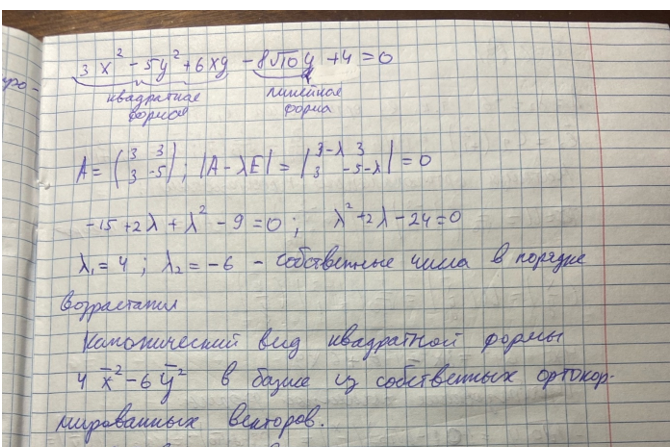 3x² - 5y² + 6xy - 8√10y + 4 = 0
квадратная форма
линейная форма
A = (3 3 3 -5); |A - λE| = |3-λ 3 3 -5-λ| = 0
-15 + 2λ + λ² - 9 = 0; λ² + 2λ - 24 = 0
λ₁ = 4; λ₂ = -6 - собственные числа в порядке
возрастания
Канонический вид квадратной формы
4x̄² - 6ȳ² в базисе из собственных ортонор-
мированных векторов.